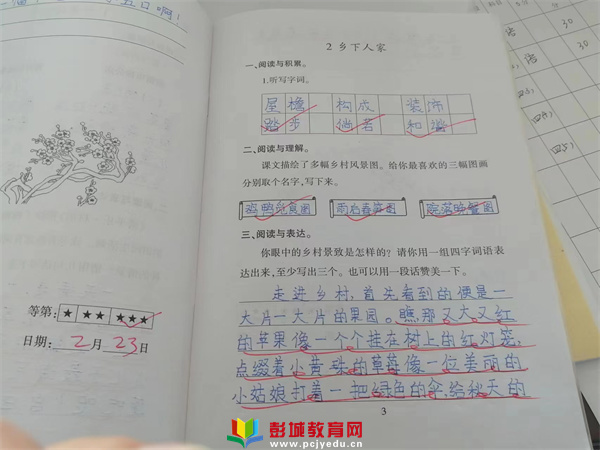 五日啊！
2 乡下人家
一、阅读与积累。
1.听写字词。
屋檐 构成 装饰
踏步 倘若 和谐
二、阅读与理解。
课文描绘了多幅乡村风景图。给你最喜欢的三幅图画
分别取个名字,写下来。
鸡鸭觅食图 雨后春笋图 院落晚餐图
三、阅读与表达。
你眼中的乡村景致是怎样的？请你用一组四字词语表
达出来,至少写出三个。也可以用一段话赞美一下。
走进乡村，首先看到的便是一
大片一大片的果园。瞧那又大又红
的苹果像一个个挂在树上的红灯笼，
点缀着小黄珠的草莓像一位美丽的
小姑娘打着一把绿色的伞,给秋天的
3
等第： ★ ★★ ★★★
日期： 2 月 23 日
30
30
彭城教育网
www.pcjyedu.cn